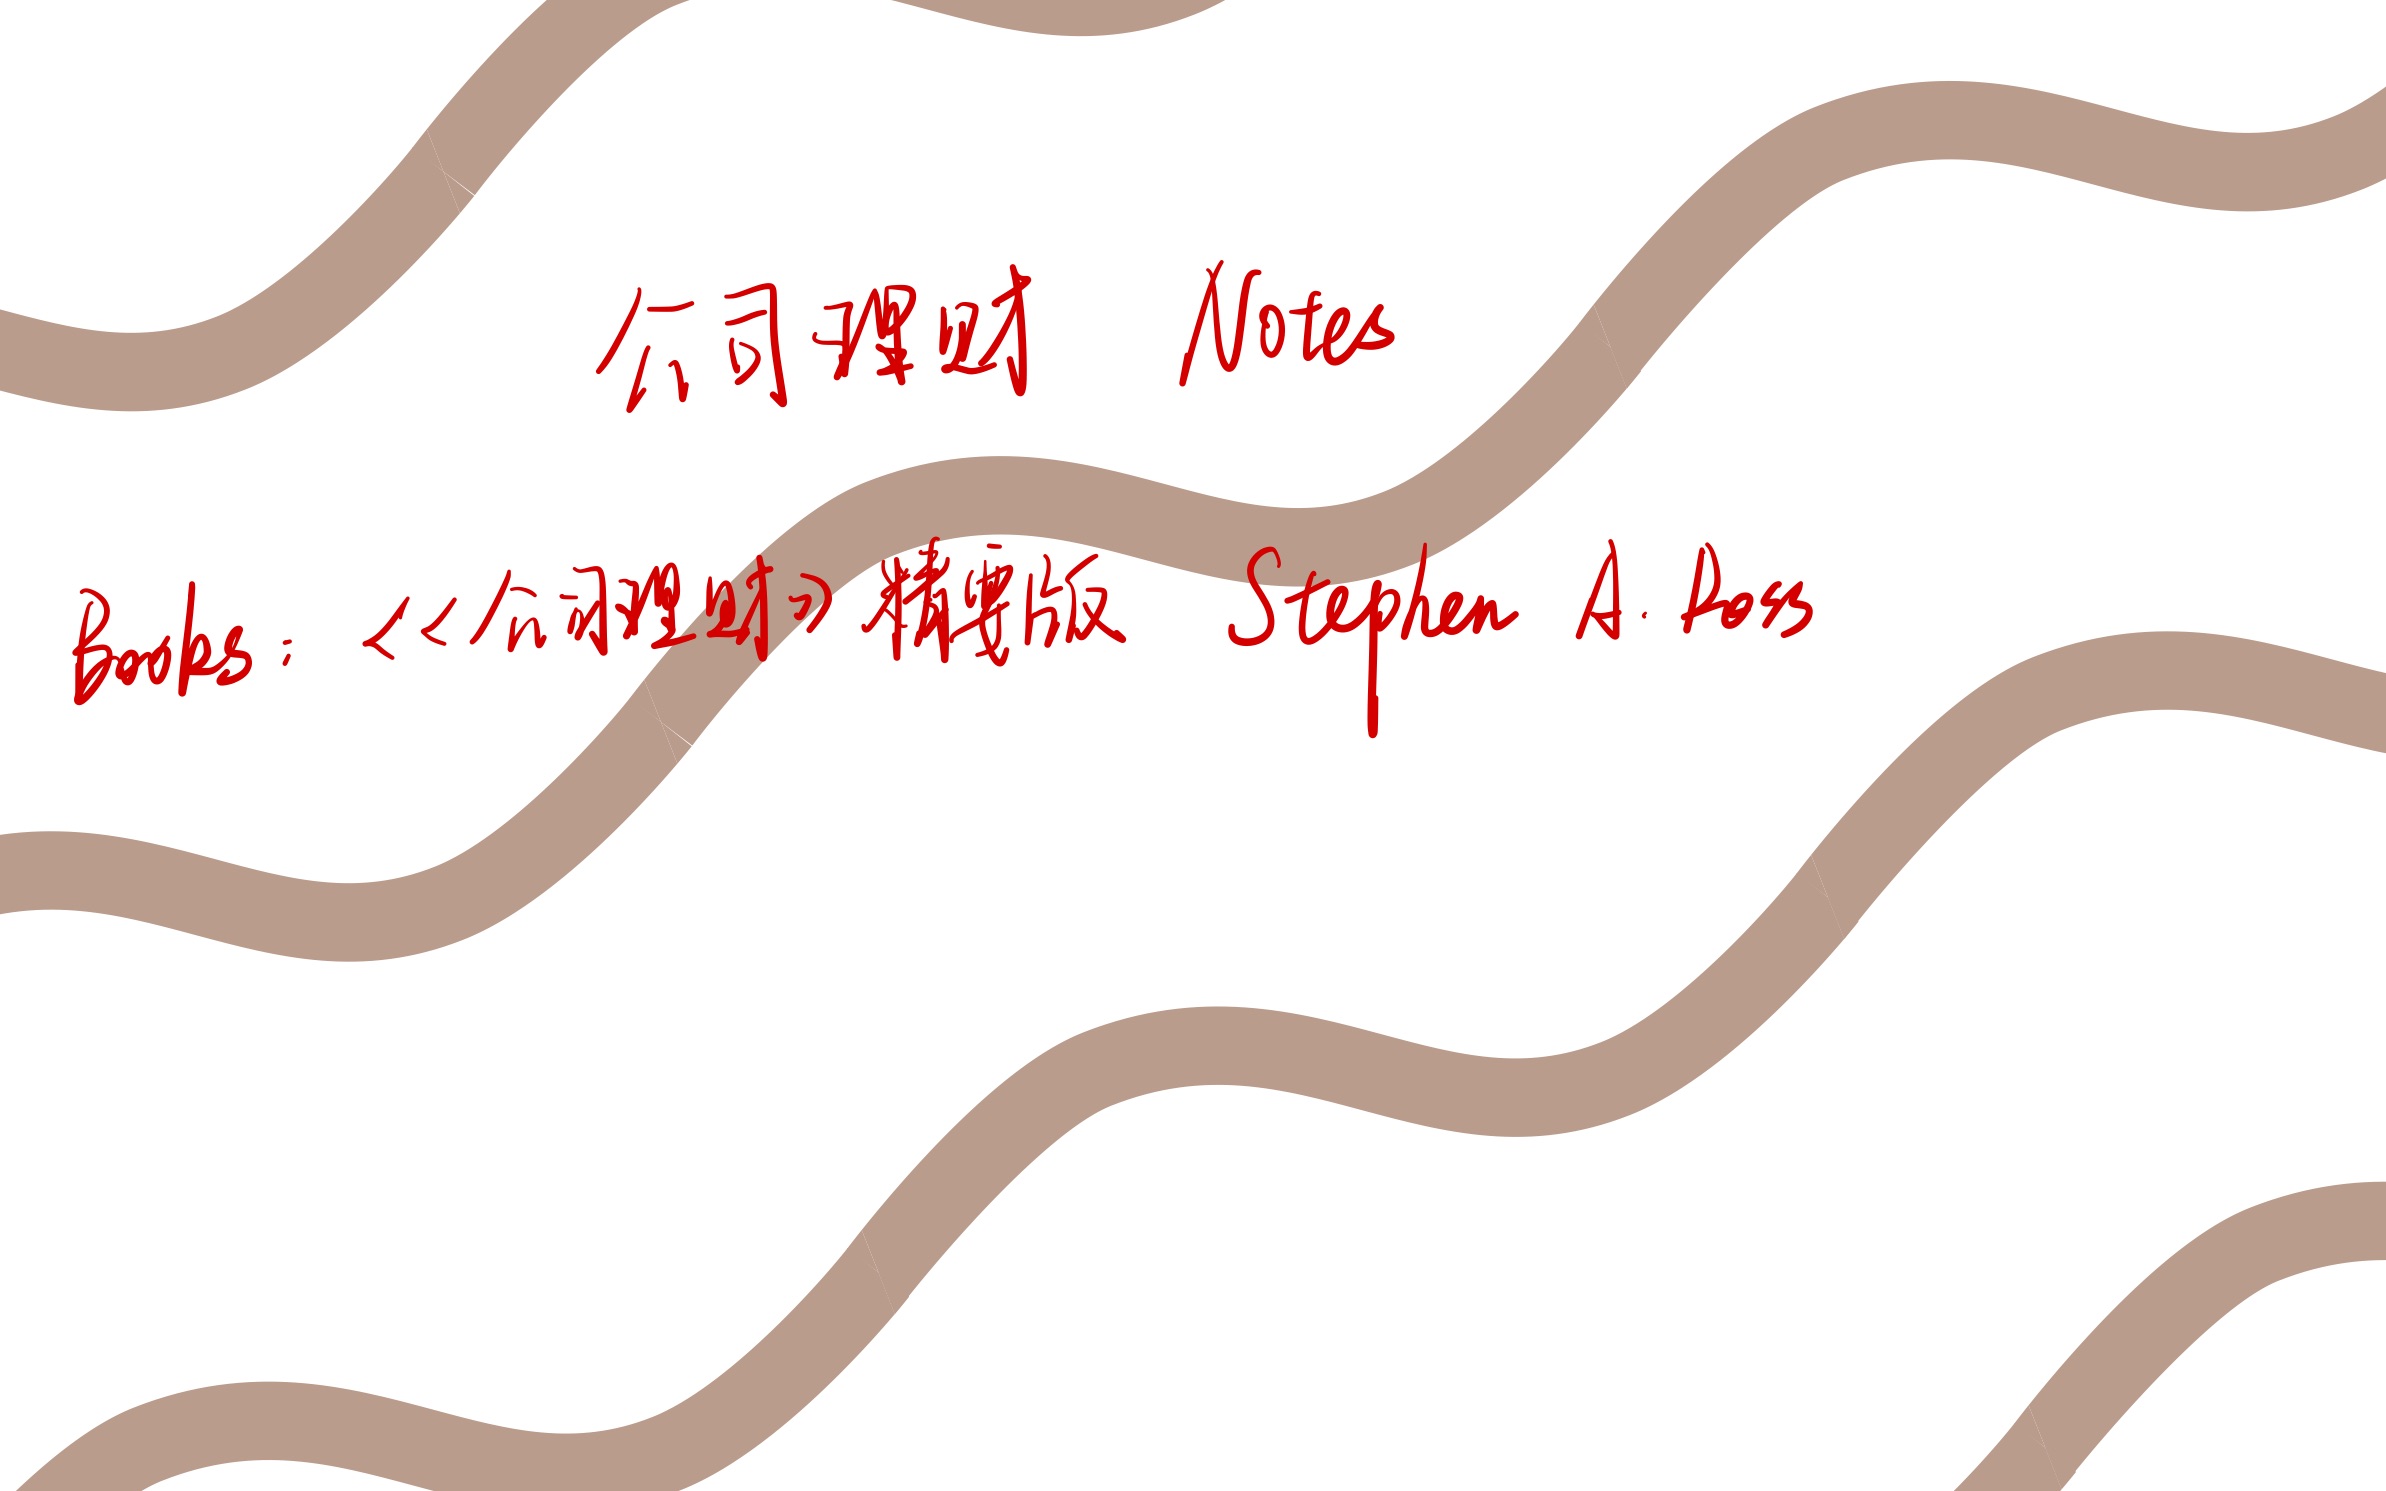 公司理财 Notes
Books: <<公司理财>> 精要版 Stephen A. Ross